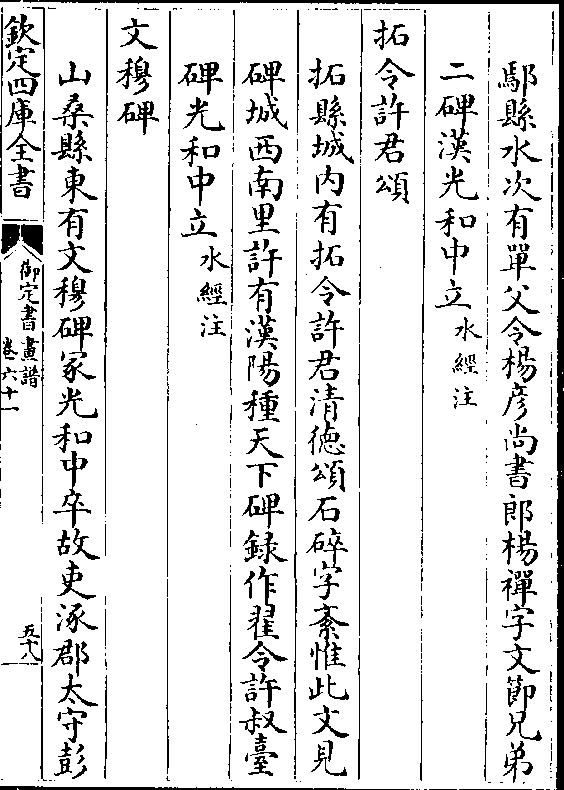 鄢縣水次有單父令楊彦尚書郎楊禪字文節兄弟
二碑漢光和中立水經注
拓令許君頌
拓縣城内有拓令許君清徳頌石碎字紊惟此文見
碑城西南里許有漢陽種天下碑録作翟令許叔臺
碑光和中立水經注
文穆碑
山桑縣東有文穆碑冢光和中卒故吏涿郡太守彭
欽定四庫全書
御定書畫譜
卷六十一
五十八